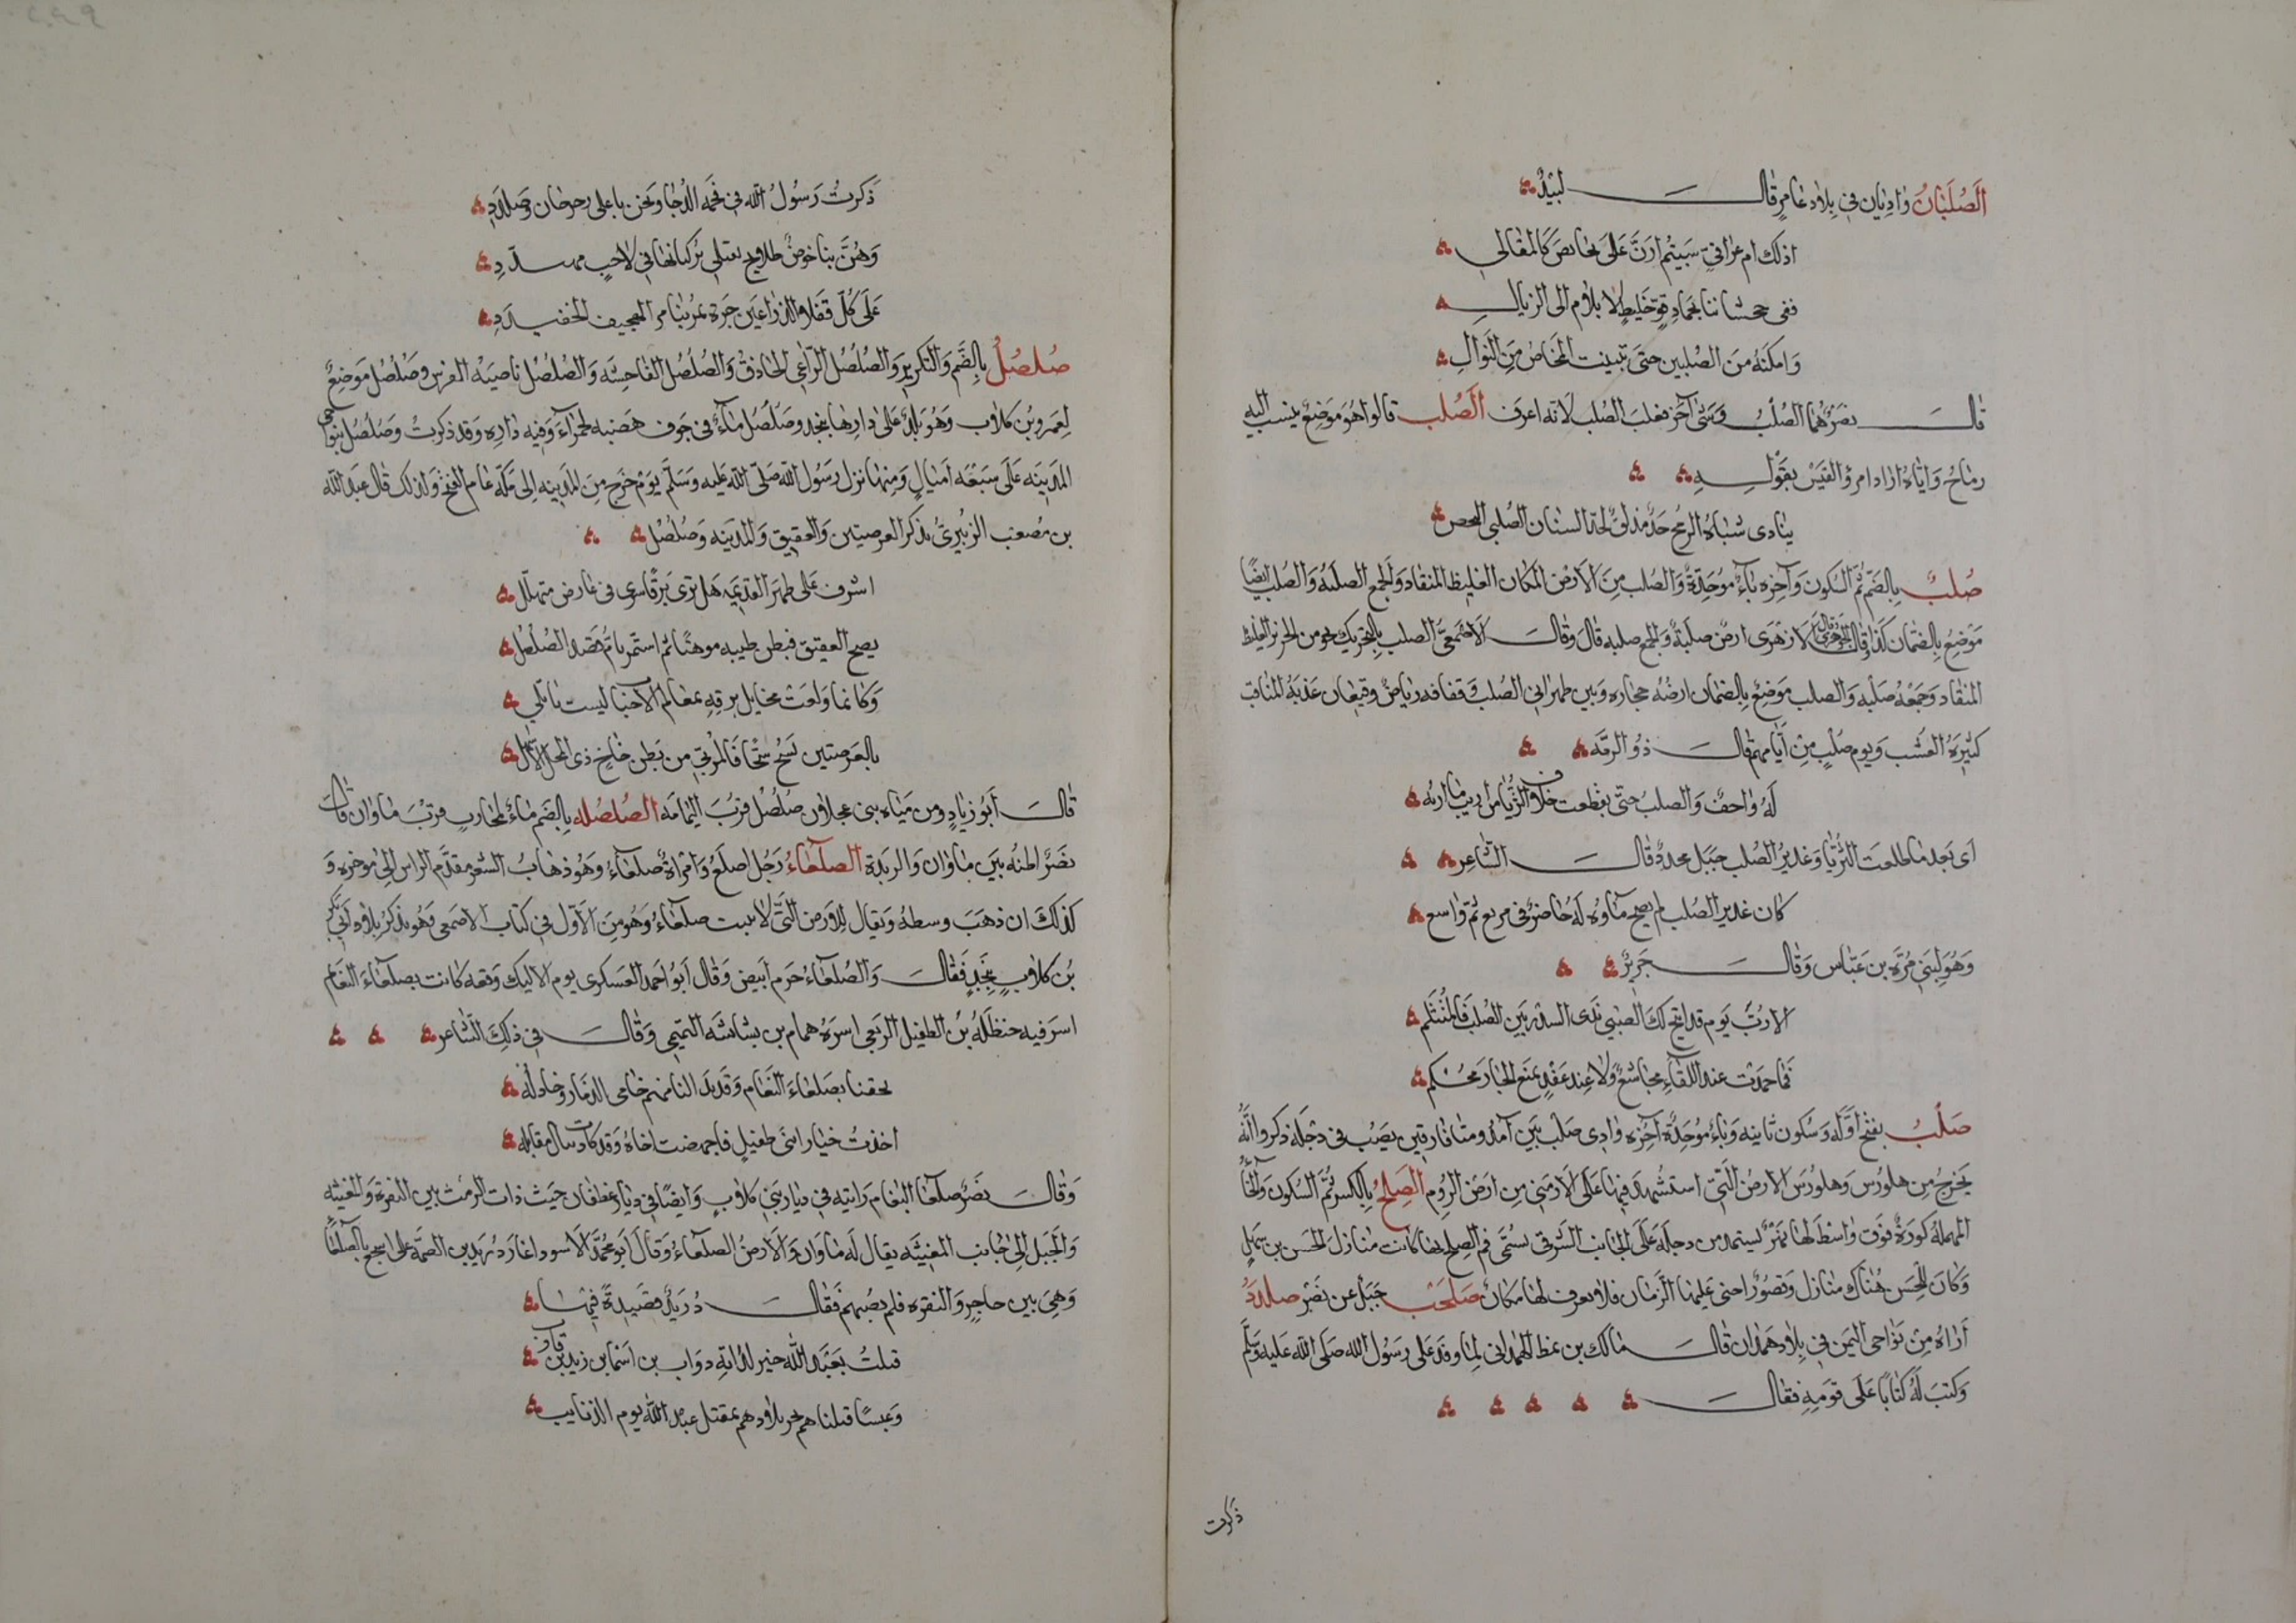 الصلبان واديان في بلاد عامر قال لبيد
اذلك ام عراقي سبيتم ارن على نحايص كالمقالي
ففي جحشاننا بجماد قو خليط لا يلام الى الزيال
وامكنه من الصلبين حتى تبينت المخاض من التوال
قال نصر هما الصلب وشئ آخر فغلب الصلب لانه اعرف الصلب قالوا هو موضع ينسب اليه
رماح واياه اراد امرؤ القيس بقوله
ينادى شباه الرمح حد مذلق لحد السنان الصلبي النحص
صلب بالضم ثم السكون وآخره باء موحدة والصلب من الارض المكان الغليظ المنقاد والجمع الصلبه والصلب ايضا
موضع بالضمان كذا قال الجوهري وقال الازهرى ارض صلبة والجمع صلبه قال وقال الاصمعي الصلب بالتحريك نحو من الحزيز الغليظ
المنقاد وجمعه صلبه والصلب موضع بالضمان ارضه حجاره وبين ظهراني الصلب وقفافه رياض وقيعان عذبة المناقب
كثيرة العشب ويوم صلب من ايامهم قال ذو الرمه
له واحف والصلب حتى تقطعت خلاف الثريا من اريب ماربه
اى بعد ما طلعت الثريا وغدير الصلب جبل محدد قال الشاعر
كان غدير الصلب لم يصح ماوه له حاضر في مربع ثم واسع
وهو لبني مرة بن عباس وقال جرير
الا رب يوم قد اتيح لك الصبي بذى السدر بين الصلب فالمتثلم
فما حمدت عند اللقاء مجاشع ولا عند عقد يمنع الجار محكم
صلب بفتح اوله وسكون ثانيه وباء موحدة آخره وادى صلب بين آمد وميافارقين يصب في دجله ذكروا انه
يخرج من هلورس وهلورس الارض التي استشهد فيها على الارمني من ارض الروم الصلح بالكسر ثم السكون والحاء
المهملة كورة فوق واسط لها نهر يستمد من دجله على الجانب الشرقي يسمى فم الصلح بها كانت منازل الحسن بن سهل
وكان للحسن هناك منازل وقصور اخنى عليها الزمان فلا يعرف لها مكان صلحب جبل عن نصر صلدد
أراه من نواحي اليمن في بلاد همدان قال مالك بن نمط الهمداني لما وفد على رسول الله صلى الله عليه وسلم
وكتب له كتابا على قومه فقال
ذكرت
ذكرت رسول الله في فحمه الدجا ونحن باعلى رحرحان وصلدد
وهن بنا خوص طلايح تعتلى بركبانها في لاحب متمدد
على كل فتلاء الذراعين جسرة تمر بنا مر الهجيف الخفيدد
صلصل بالضم والتكرير والصلصل الراعي الحاذق والصلصل الفاحشه والصلصل ناصيه الفرس وصلصل موضع
لعمرو بن كلاب وهو باعلى دارها بنجد وصلصل ماء في جوف هضبه حمراء وفيه داره وقد ذكرت وصلصل بنواحي
المدينه على سبعه اميال ومنها نزل رسول الله صلى الله عليه وسلم يوم خرج من المدينه الى مكة عام الفتح ولذلك قال عبد الله
بن مصعب الزبيرى يذكر العرصتين والعقيق والمدينه وصلصل
اشرف على ظهر القديمه هل ترى برقا سرى في عارض متهلل
يصح العقيق فبطن طيبه موهنا ثم استمر يام قصد الصلصل
وكانما ولعت مخايل برقه بمعالم الاحبا ليست تاتلي
بالعرصتين يسح سحا فالربى من بطن خاخ ذى المحل الاسهل
قال أبو زياد ومن مياه بنى عجلان صلصل قرب اليمامه الصلصله بالضم ماء لمحارب قرب ماوان قال
نصر اظنه بين ماوان والربذة الصلعاء رجل اصلع وامراة صلعاء وهو ذهاب الشعر مقدم الراس الى موخره و
كذلك ان ذهب وسطه ويقال للارض التي لا تنبت صلعاء وهو من الاول في كتاب الاصمعى وهو يذكر بلاد ابي بكر
بن كلاب بنجد فقال والصلعاء حزم ابيض وقال ابو احمد العسكرى يوم الاليك وقعه كانت بصلعاء النعام
اسر فيه حنظله بن الطفيل الربعي اسره همام بن بشاشه التميمي وقال في ذلك الشاعر
لحقنا بصلعاء النعام وقد بدا لنا منهم حامى الذمار وخاذله
اخذت خيار ابنى طفيل فاجهضت اخاه وقد كادت تنال مقاتله
وقال نصر صلعاء النعام رابيه في ديار بني كلاب وايضا في ديار غطفان حيث ذات الرمث بين النقرة والمغيثه
والجبل الى جانب المغيثه يقال له ماوان والارض الصلعاء وقال ابو محمد الاسود اغار دريد بن الصمه على اشجع بالصلعاء
وهي بين حاجر والنقره فلم يصبهم فقال دريد قصيدة فيها
قتلت بعبد الله خير لداته ذواب بن اسماء بن زيد بن قارب
وعبسا قتلناهم بحر بلادهم بمقتل عبد الله يوم الذنايب